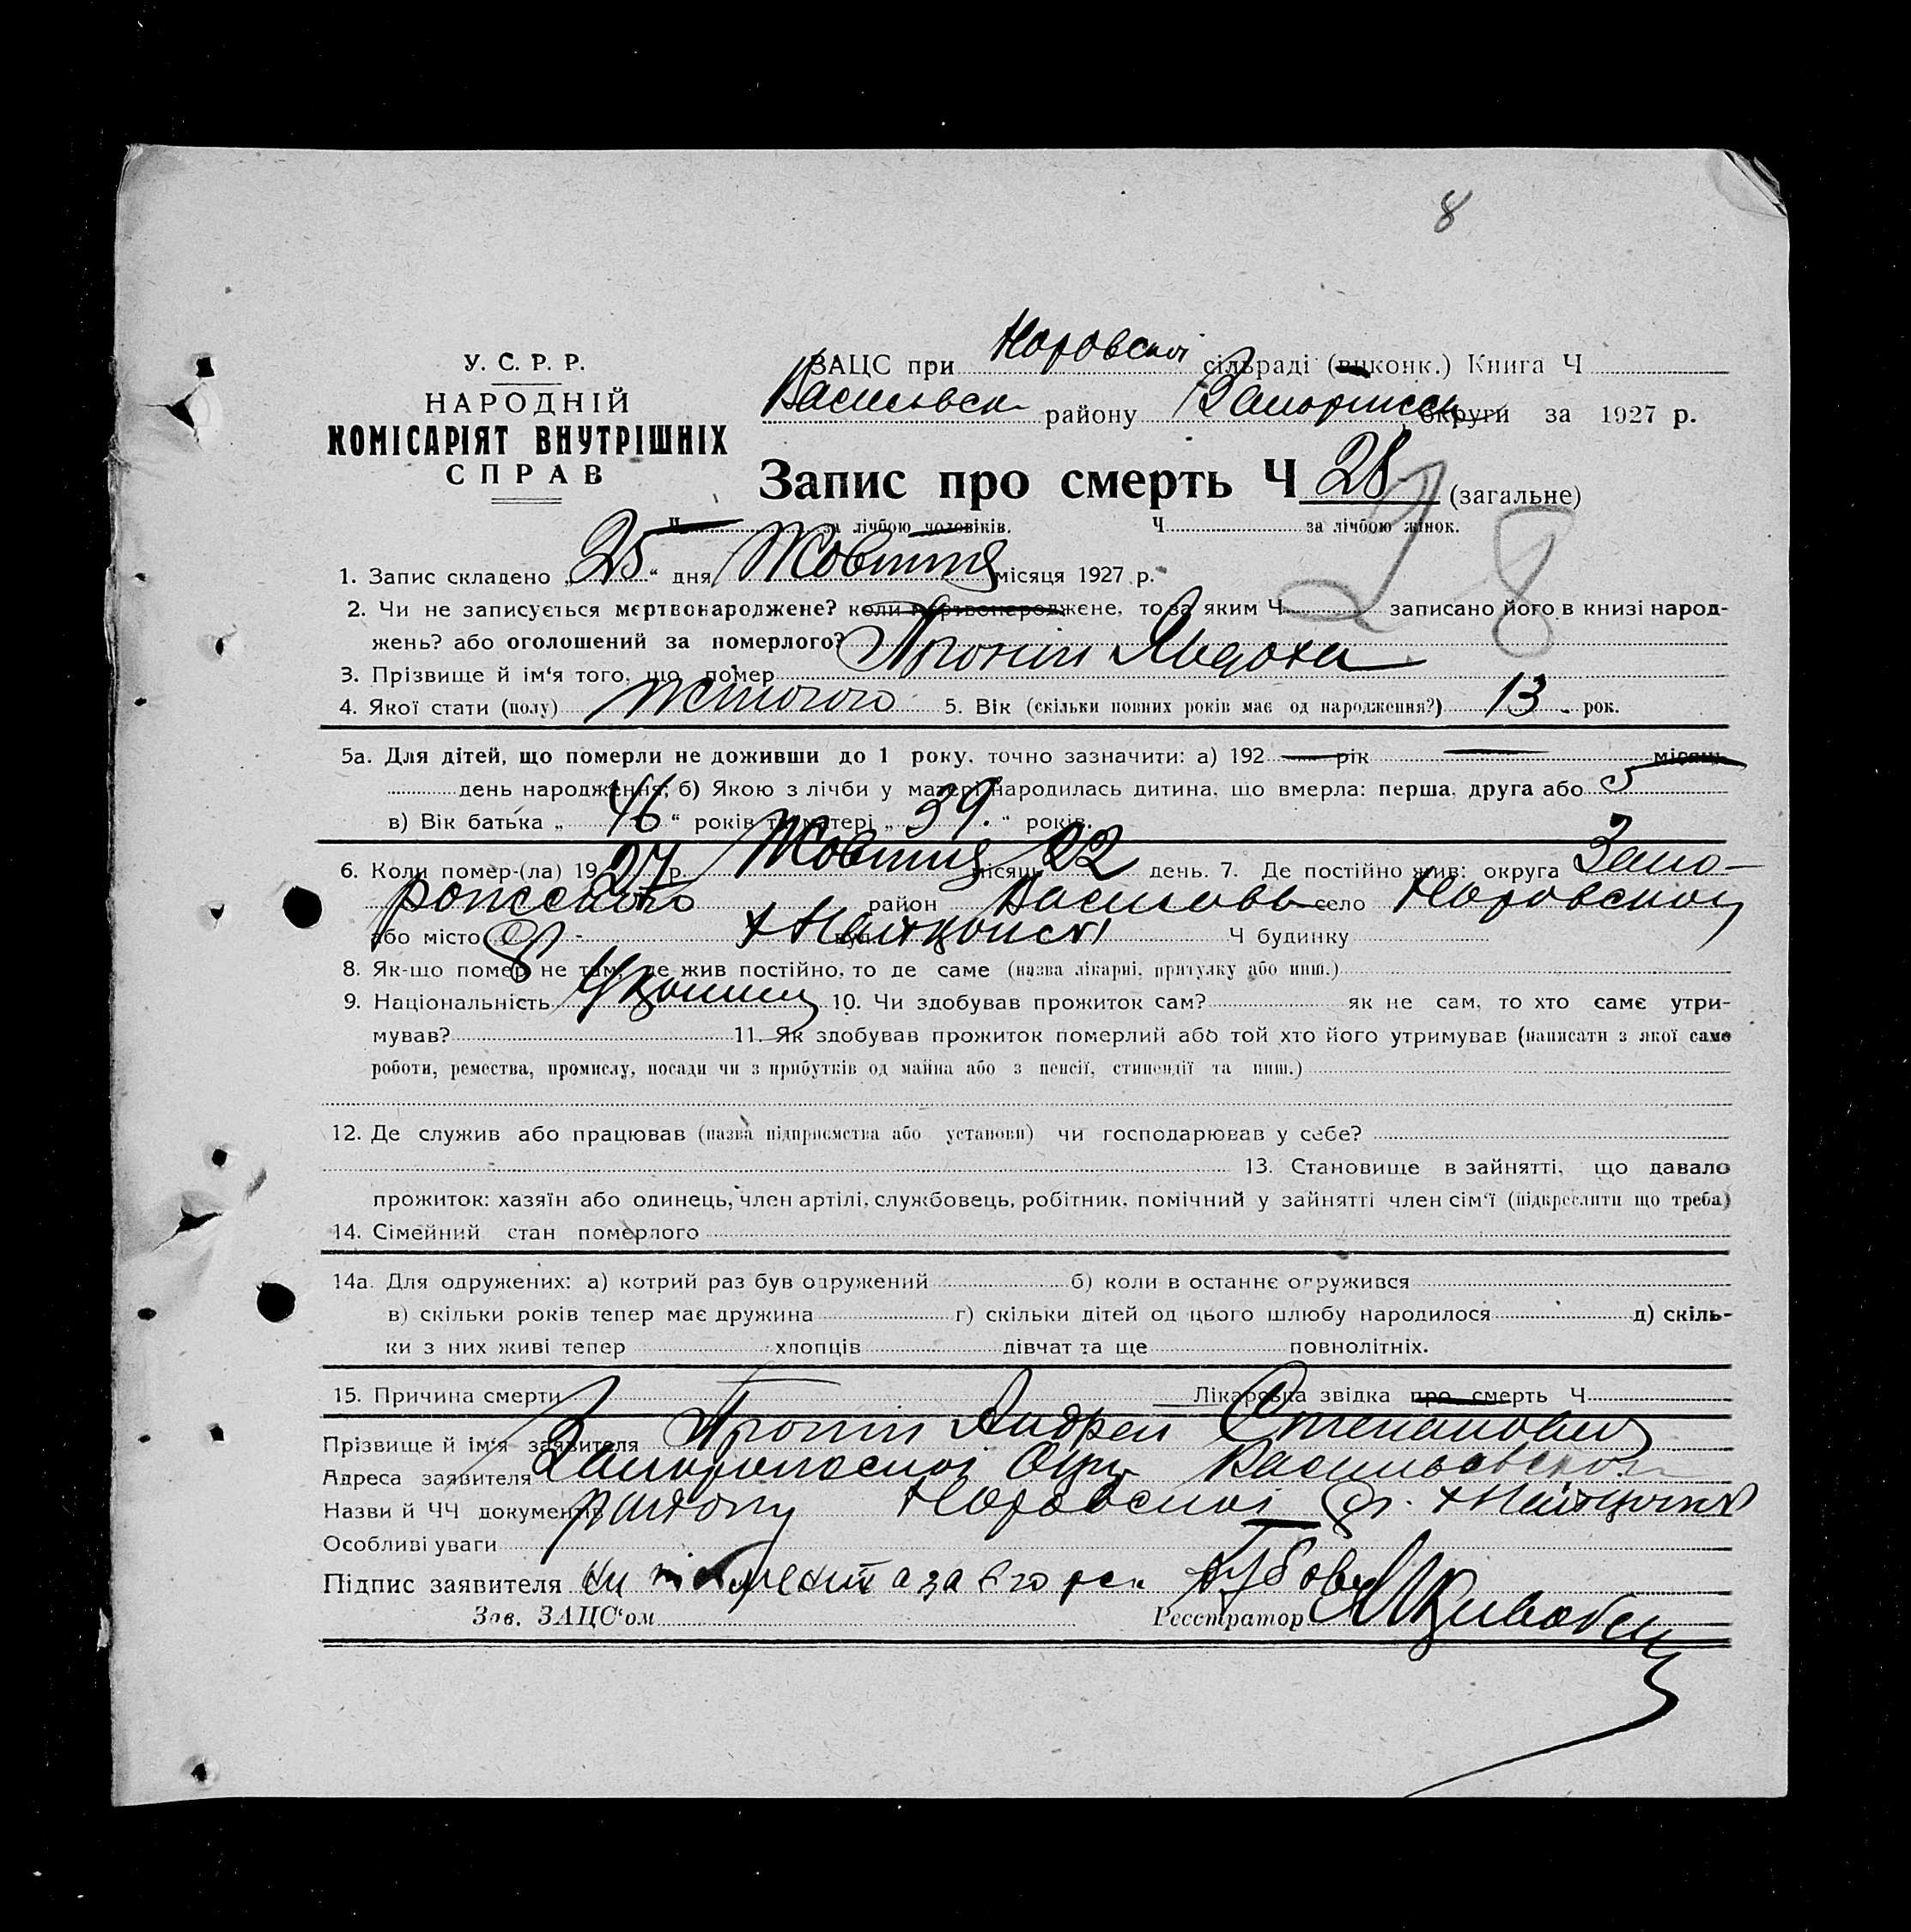 8
У. С. Р. Р.
НАРОДНІЙ
КОМІСАРІЯТ ВНУТРІШНІХ
СПРАВ
ЗАЦС при сільраді (виконк.) Книга Ч
району округи за 1927 р.
Запис про смерть Ч 28 (загальне)
Ч за лічбою чоловіків. Ч за лічбою жінок.
28
1. Запис складено „ 25 “ дня Жовтня місяця 1927 р.
2. Чи не записується мертвонароджене? коли мертвонароджене, то за яким Ч записано його в книзі народ-
жень? або оголошений за померлого?
3. Прізвище й ім‘я того, що помер
4. Якої стати (полу) 5. Вік (скільки повних років має од народження?) 13 рок.
5а. Для дітей, що померли не доживши до 1 року, точно зазначити: а) 192 рік місяць
день народження; б) Якою з лічби у матері народилась дитина, що вмерла: перша, друга або 5
в) Вік батька „ 46 “ років та матері „ 39. “ років.
6. Коли помер-(ла) 1927 р. Жовтня місяць 22 день. 7. Де постійно жив: округа Запо-
район село
або місто вул. Ч будинку
8. Як-що помер не там, де жив постійно, то де саме (назва лікарні, притулку або инш.)
9. Національність 10. Чи здобував прожиток сам? як не сам, то хто саме утри-
мував? 11. Як здобував прожиток померлий або той хто його утримував (написати з якої саме
роботи, ремества, промислу, посади чи з прибутків од майна або з пенсії, стипендії та инш.)
12. Де служив або працював (назва підприємства або установи) чи господарював у себе?
13. Становище в зайнятті, що давало
прожиток: хазяїн або одинець, член артілі, службовець, робітник, помічний у зайнятті член сім‘ї (підкреслити що треба)
14. Сімейний стан померлого
14а. Для одружених: а) котрий раз був одружений б) коли в останнє одружився
в) скільки років тепер має дружина г) скільки дітей од цього шлюбу народилося д) скіль-
ки з них живі тепер хлопців дівчат та ще повнолітніх.
15. Причина смерти Лікарська звідка про смерть Ч
Прізвище й ім‘я заявителя Андрей Степанович
Адреса заявителя
Назви й ЧЧ документів району
Особливі уваги
Підпис заявителя
Зав. ЗАЦС‘ом Реєстратор